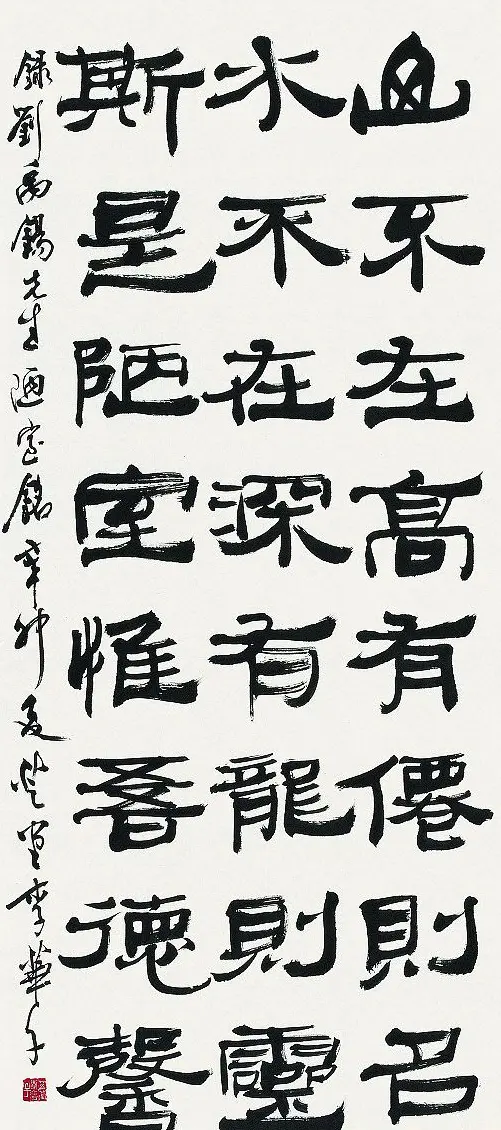 山不在高有僊則名
水不在深有龍則靈
斯是陋室惟吾德馨
錄劉禹錫先生陋室銘辛卯夏堂李華